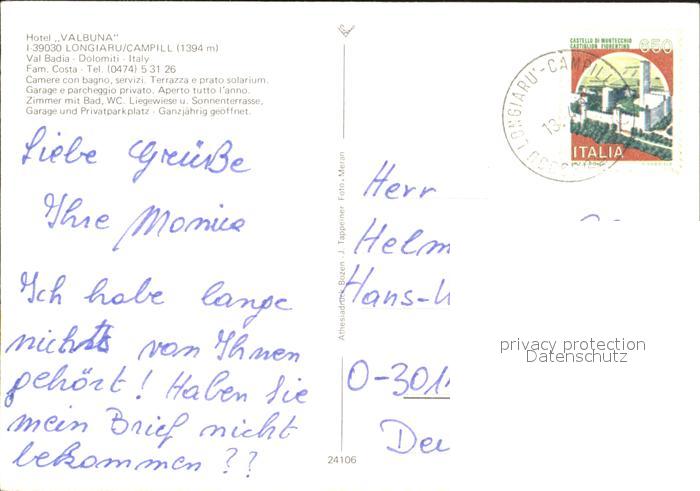 Hotel „VALBUNA"
I-39030 LONGIARU/CAMPILL (1394 m)
Val Badia - Dolomiti - Italy
Fam. Costa - Tel. (0474) 5 31 26
Camere con bagno, servizi. Terrazza e prato solarium.
Garage e parcheggio privato. Aperto tutto l'anno.
Zimmer mit Bad, WC. Liegewiese u. Sonnenterrasse,
Garage und Privatparkplatz - Ganzjährig geöffnet.
Liebe Grüße
Ihre Monica
Ich habe lange
nichts von Ihnen
gehört! Haben Sie
mein Brief nicht
bekommen ??
Athesiadruck Bozen - J. Tappeiner Foto, Meran
24106
CASTELLO DI MONTECCHIO
CASTIGLION FIORENTINO
650
ITALIA
LONGIARU'-CAMPILL
13
Herr
Helm
Hans-
O-301
Deu
privacy protection
Datenschutz